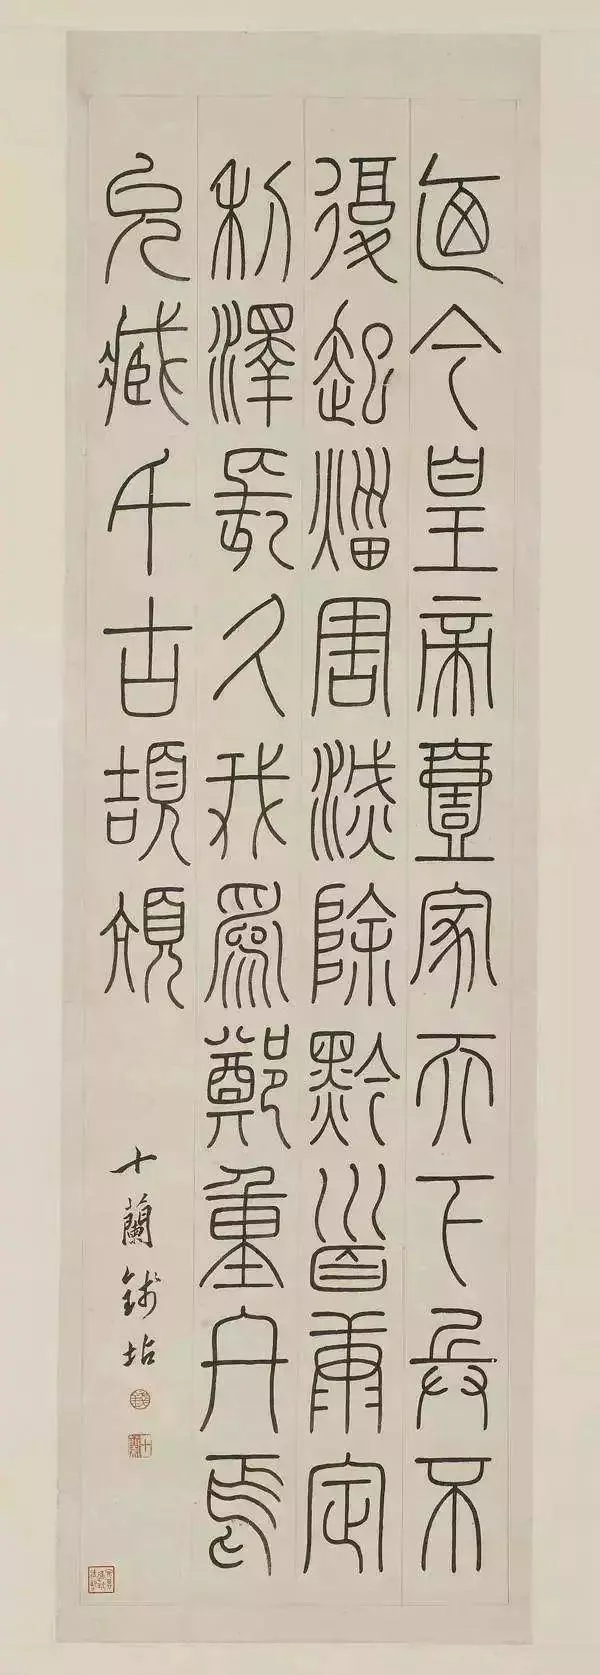 廼今皇帝壹家天下兵不
復起災害滅除黔首康定
利澤長久我為鄭重終焉
允臧千古頡頏
十蘭錢坫